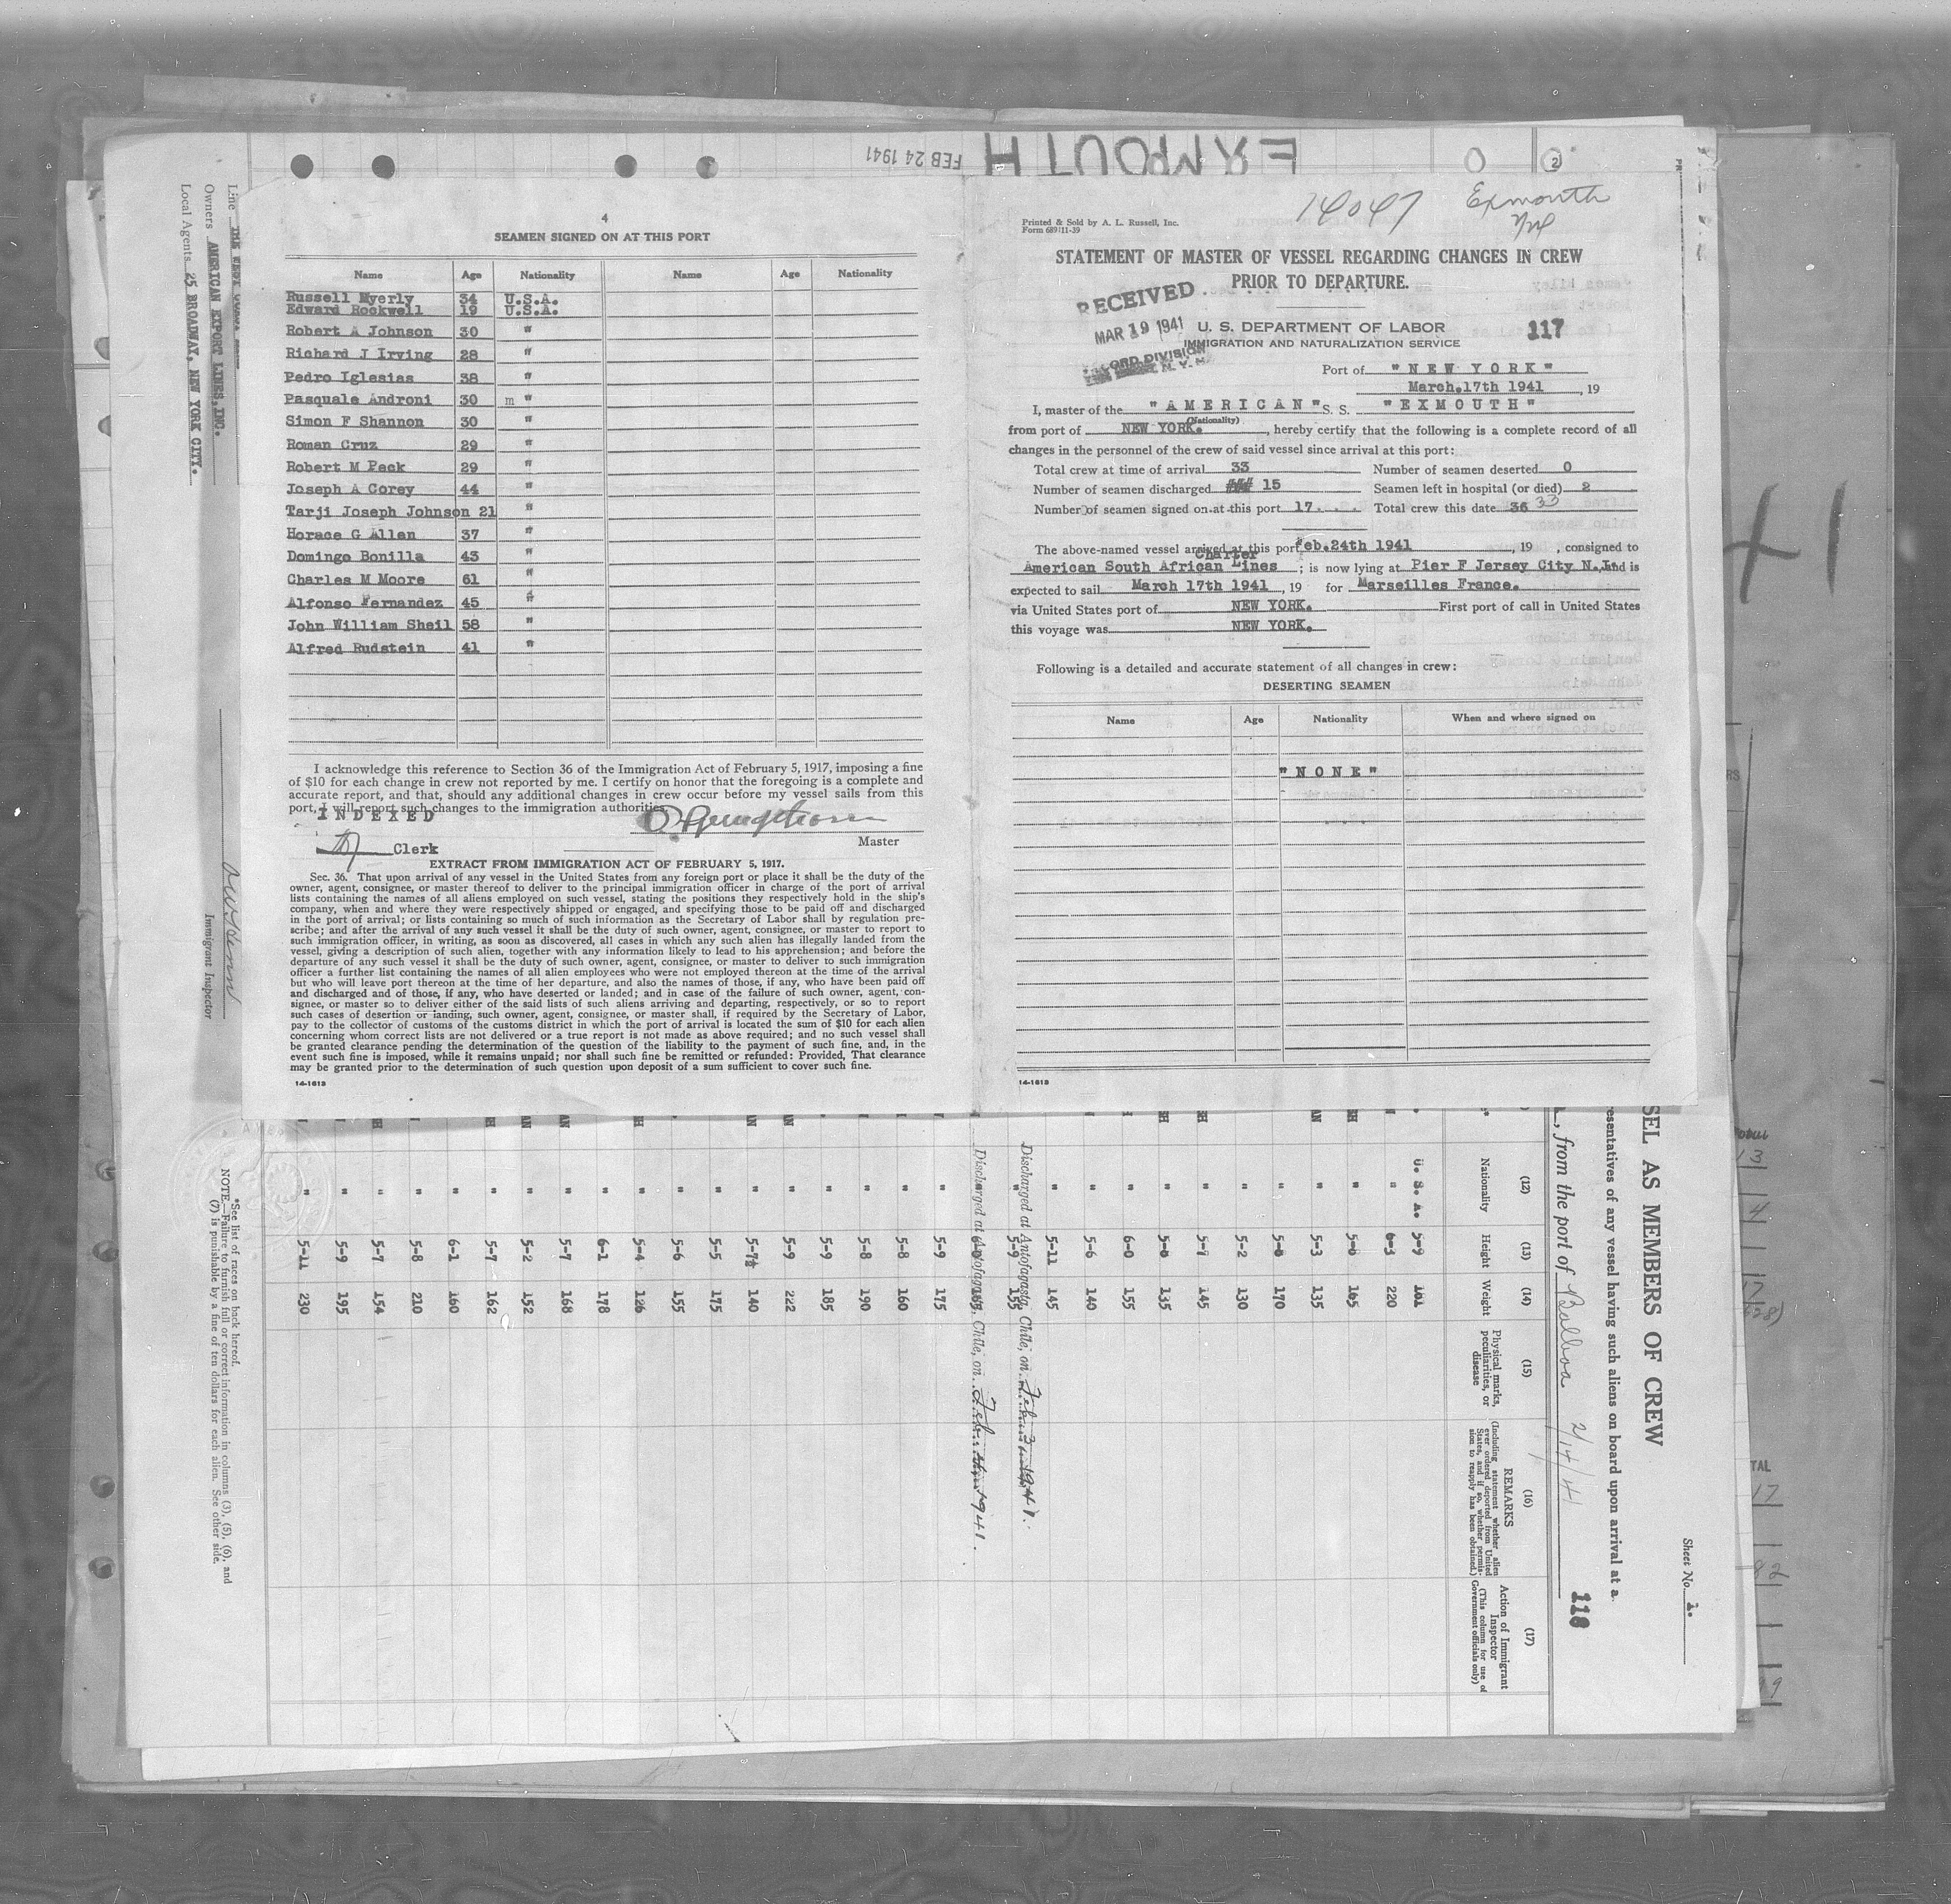 FEB 24 1941
EXMOUTH
2
4
SEAMEN SIGNED ON AT THIS PORT
Name Age Nationality Name Age Nationality
Russell Myerly 34 U.S.A.
Edward Rockwell 19 U.S.A.
Robert A Johnson 30 "
Richard J Irving 28 "
Pedro Iglesias 38 "
Pasquale Androni 30 m "
Simon F Shannon 30 "
Roman Cruz 29 "
Robert M Peck 29 "
Joseph A Corey 44 "
Tarji Joseph Johnson 21 "
Horace G Allen 37 "
Domingo Bonilla 43 "
Charles M Moore 61 "
Alfonso Fernandez 45 "
John William Sheil 58 "
Alfred Rudstein 41 "
I acknowledge this reference to Section 36 of the Immigration Act of February 5, 1917, imposing a fine
of $10 for each change in crew not reported by me. I certify on honor that the foregoing is a complete and
accurate report, and that, should any additional changes in crew occur before my vessel sails from this
port, I will report such changes to the immigration authorities.
INDEXED
Clerk
Master
EXTRACT FROM IMMIGRATION ACT OF FEBRUARY 5, 1917.
Sec. 36. That upon arrival of any vessel in the United States from any foreign port or place it shall be the duty of the
owner, agent, consignee, or master thereof to deliver to the principal immigration officer in charge of the port of arrival
lists containing the names of all aliens employed on such vessel, stating the positions they respectively hold in the ship's
company, when and where they were respectively shipped or engaged, and specifying those to be paid off and discharged
in the port of arrival; or lists containing so much of such information as the Secretary of Labor shall by regulation pre-
scribe; and after the arrival of any such vessel it shall be the duty of such owner, agent, consignee, or master to report to
such immigration officer, in writing, as soon as discovered, all cases in which any such alien has illegally landed from the
vessel, giving a description of such alien, together with any information likely to lead to his apprehension; and before the
departure of any such vessel it shall be the duty of such owner, agent, consignee, or master to deliver to such immigration
officer a further list containing the names of all alien employees who were not employed thereon at the time of the arrival
but who will leave port thereon at the time of her departure, and also the names of those, if any, who have been paid off
and discharged and of those, if any, who have deserted or landed; and in case of the failure of such owner, agent, con-
signee, or master so to deliver either of the said lists of such aliens arriving and departing, respectively, or so to report
such cases of desertion or landing, such owner, agent, consignee, or master shall, if required by the Secretary of Labor,
pay to the collector of customs of the customs district in which the port of arrival is located the sum of $10 for each alien
concerning whom correct lists are not delivered or a true report is not made as above required; and no such vessel shall
be granted clearance pending the determination of the question of the liability to the payment of such fine, and, in the
event such fine is imposed, while it remains unpaid; nor shall such fine be remitted or refunded: Provided, That clearance
may be granted prior to the determination of such question upon deposit of a sum sufficient to cover such fine.
14-1613
Printed & Sold by A. L. Russell, Inc.
Form 689 11-39
14047
Exmouth
STATEMENT OF MASTER OF VESSEL REGARDING CHANGES IN CREW
PRIOR TO DEPARTURE.
RECEIVED
MAR 19 1941
RECORD DIVISION
U. S. DEPARTMENT OF LABOR
IMMIGRATION AND NATURALIZATION SERVICE
117
Port of "NEW YORK"
March.17th 1941, 19
I, master of the "AMERICAN" S. S. "EXMOUTH"
(Nationality)
from port of NEW YORK., hereby certify that the following is a complete record of all
changes in the personnel of the crew of said vessel since arrival at this port:
Total crew at time of arrival 33 Number of seamen deserted 0
Number of seamen discharged ### 15 Seamen left in hospital (or died) 2
Number of seamen signed on at this port 17 Total crew this date 36 33
The above-named vessel arrived at this port Feb.24th 1941, 19 , consigned to
Charter
American South African Lines ; is now lying at Pier F Jersey City N.J. and is
expected to sail March 17th 1941, 19 for Marseilles France.
via United States port of NEW YORK. First port of call in United States
this voyage was NEW YORK.
Following is a detailed and accurate statement of all changes in crew:
DESERTING SEAMEN
Name Age Nationality When and where signed on
"NONE"
14-1613
Line
Owners AMERICAN EXPORT LINES,INC.
Local Agents 25 BROADWAY, NEW YORK CITY.
Immigrant Inspector
*See list of races on back hereof.
NOTE.—Failure to furnish full or correct information in columns (3), (5), (6), and
(7) is punishable by a fine of ten dollars for each alien. See other side.
Sheet No. 1.
SEL AS MEMBERS OF CREW
esentatives of any vessel having such aliens on board upon arrival at a
, from the port of Balboa 2/14/41
118
(12) Nationality
(13) Height
(14) Weight
(15) Physical marks, peculiarities, or disease
(16) REMARKS (Including statement whether alien ever ordered deported from United States, and if so, whether permission to reapply has been obtained.)
(17) Action of Immigrant Inspector (This column for use of Government officials only)
U. S. A. 5-9 161
" 6-3 220
" 5-8 165
" 5-3 135
" 5-8 170
" 5-2 130
" 5-7 145
" 5-6 135
" 6-0 155
" 5-6 140
" 5-11 145
" 5-9 155 Discharged at Antofagasta, Chile, on Feb. 3 1941.
Discharged at Antofagasta, Chile, on Feb. 1941.
" 5-9 175
" 5-8 160
" 5-8 190
" 5-9 185
" 5-9 222
" 5-7½ 140
" 5-5 175
" 5-6 155
" 5-4 126
" 6-1 178
" 5-7 168
" 5-2 152
" 5-7 162
" 6-1 160
" 5-8 210
" 5-7 154
" 5-9 195
" 5-11 230
41